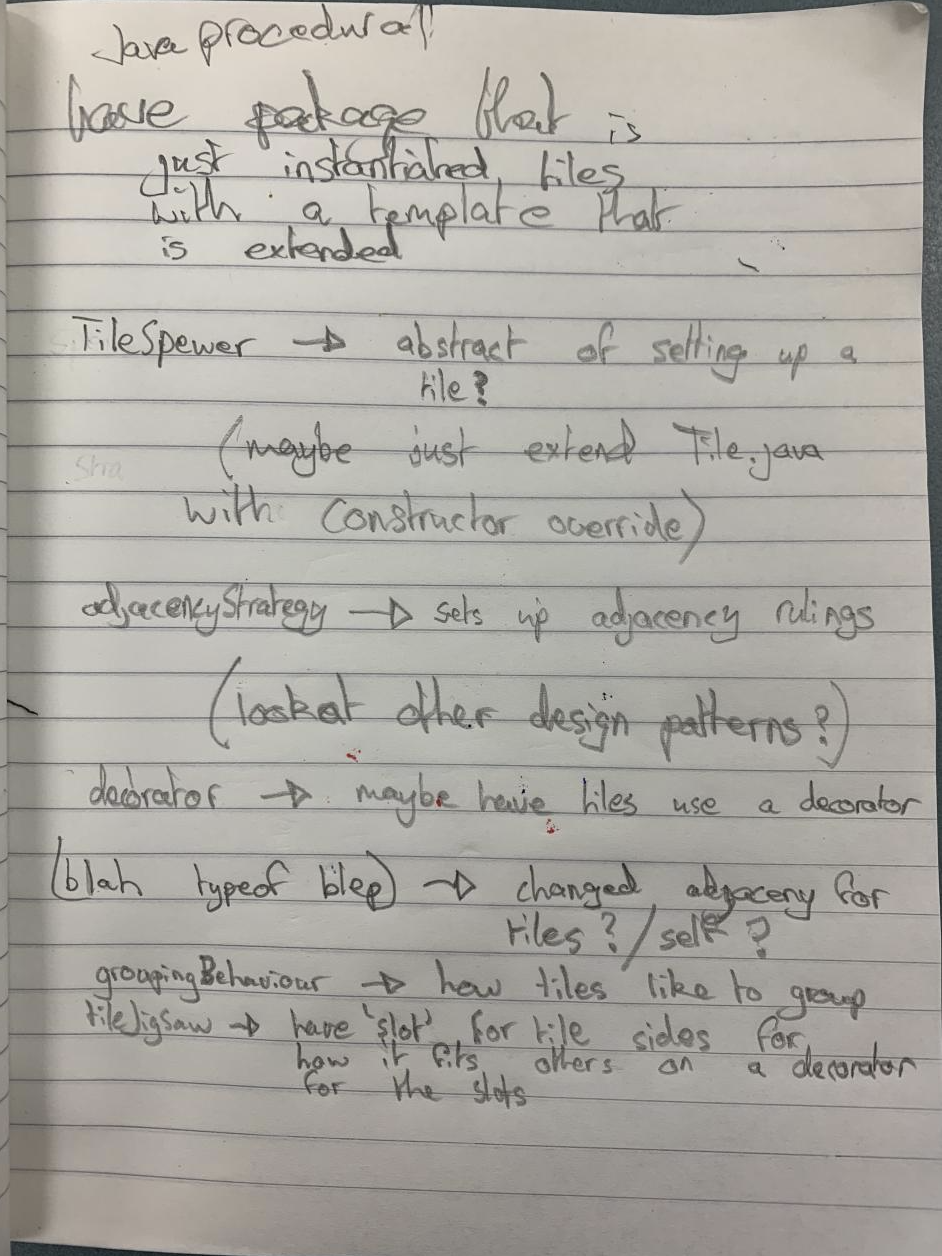 Java procedural!
have package that is
just instantiated tiles
with a template that
is extended
TileSpewer → abstract of setting up a
tile?
(maybe just extend Tile.java
Stra
with constructor override)
adjacencyStrategy → sets up adjacency rulings
(look at other design patterns?)
decorator → maybe have tiles use a decorator
(blah typeof blep) → changed adjaceny for
tiles?/self?
groupingBehaviour → how tiles like to group
tileJigsaw → have 'slot' for tile sides for
how it fits others on a decorator
for the slots